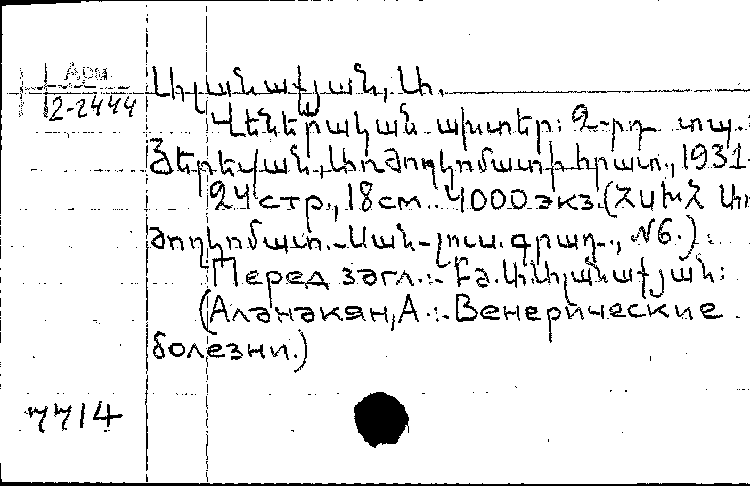 Арм
2-2444
Ալանաքյան, Ա.
Վեներական ախտեր: 2-րդ տպ.:
Յերեվան, Առժողկոմատի հրատ., 1931.
24 стр., 18 см.. 4000 экз. (ՀՍԽՀ Առ
ժողկոմատ.-Սան-լուս. գրադ-., №6.):
Перед загл.:- Բժ. Ա. Ալանաքյան:
(Аланакян, А.:. Венерические
болезни.)
7714